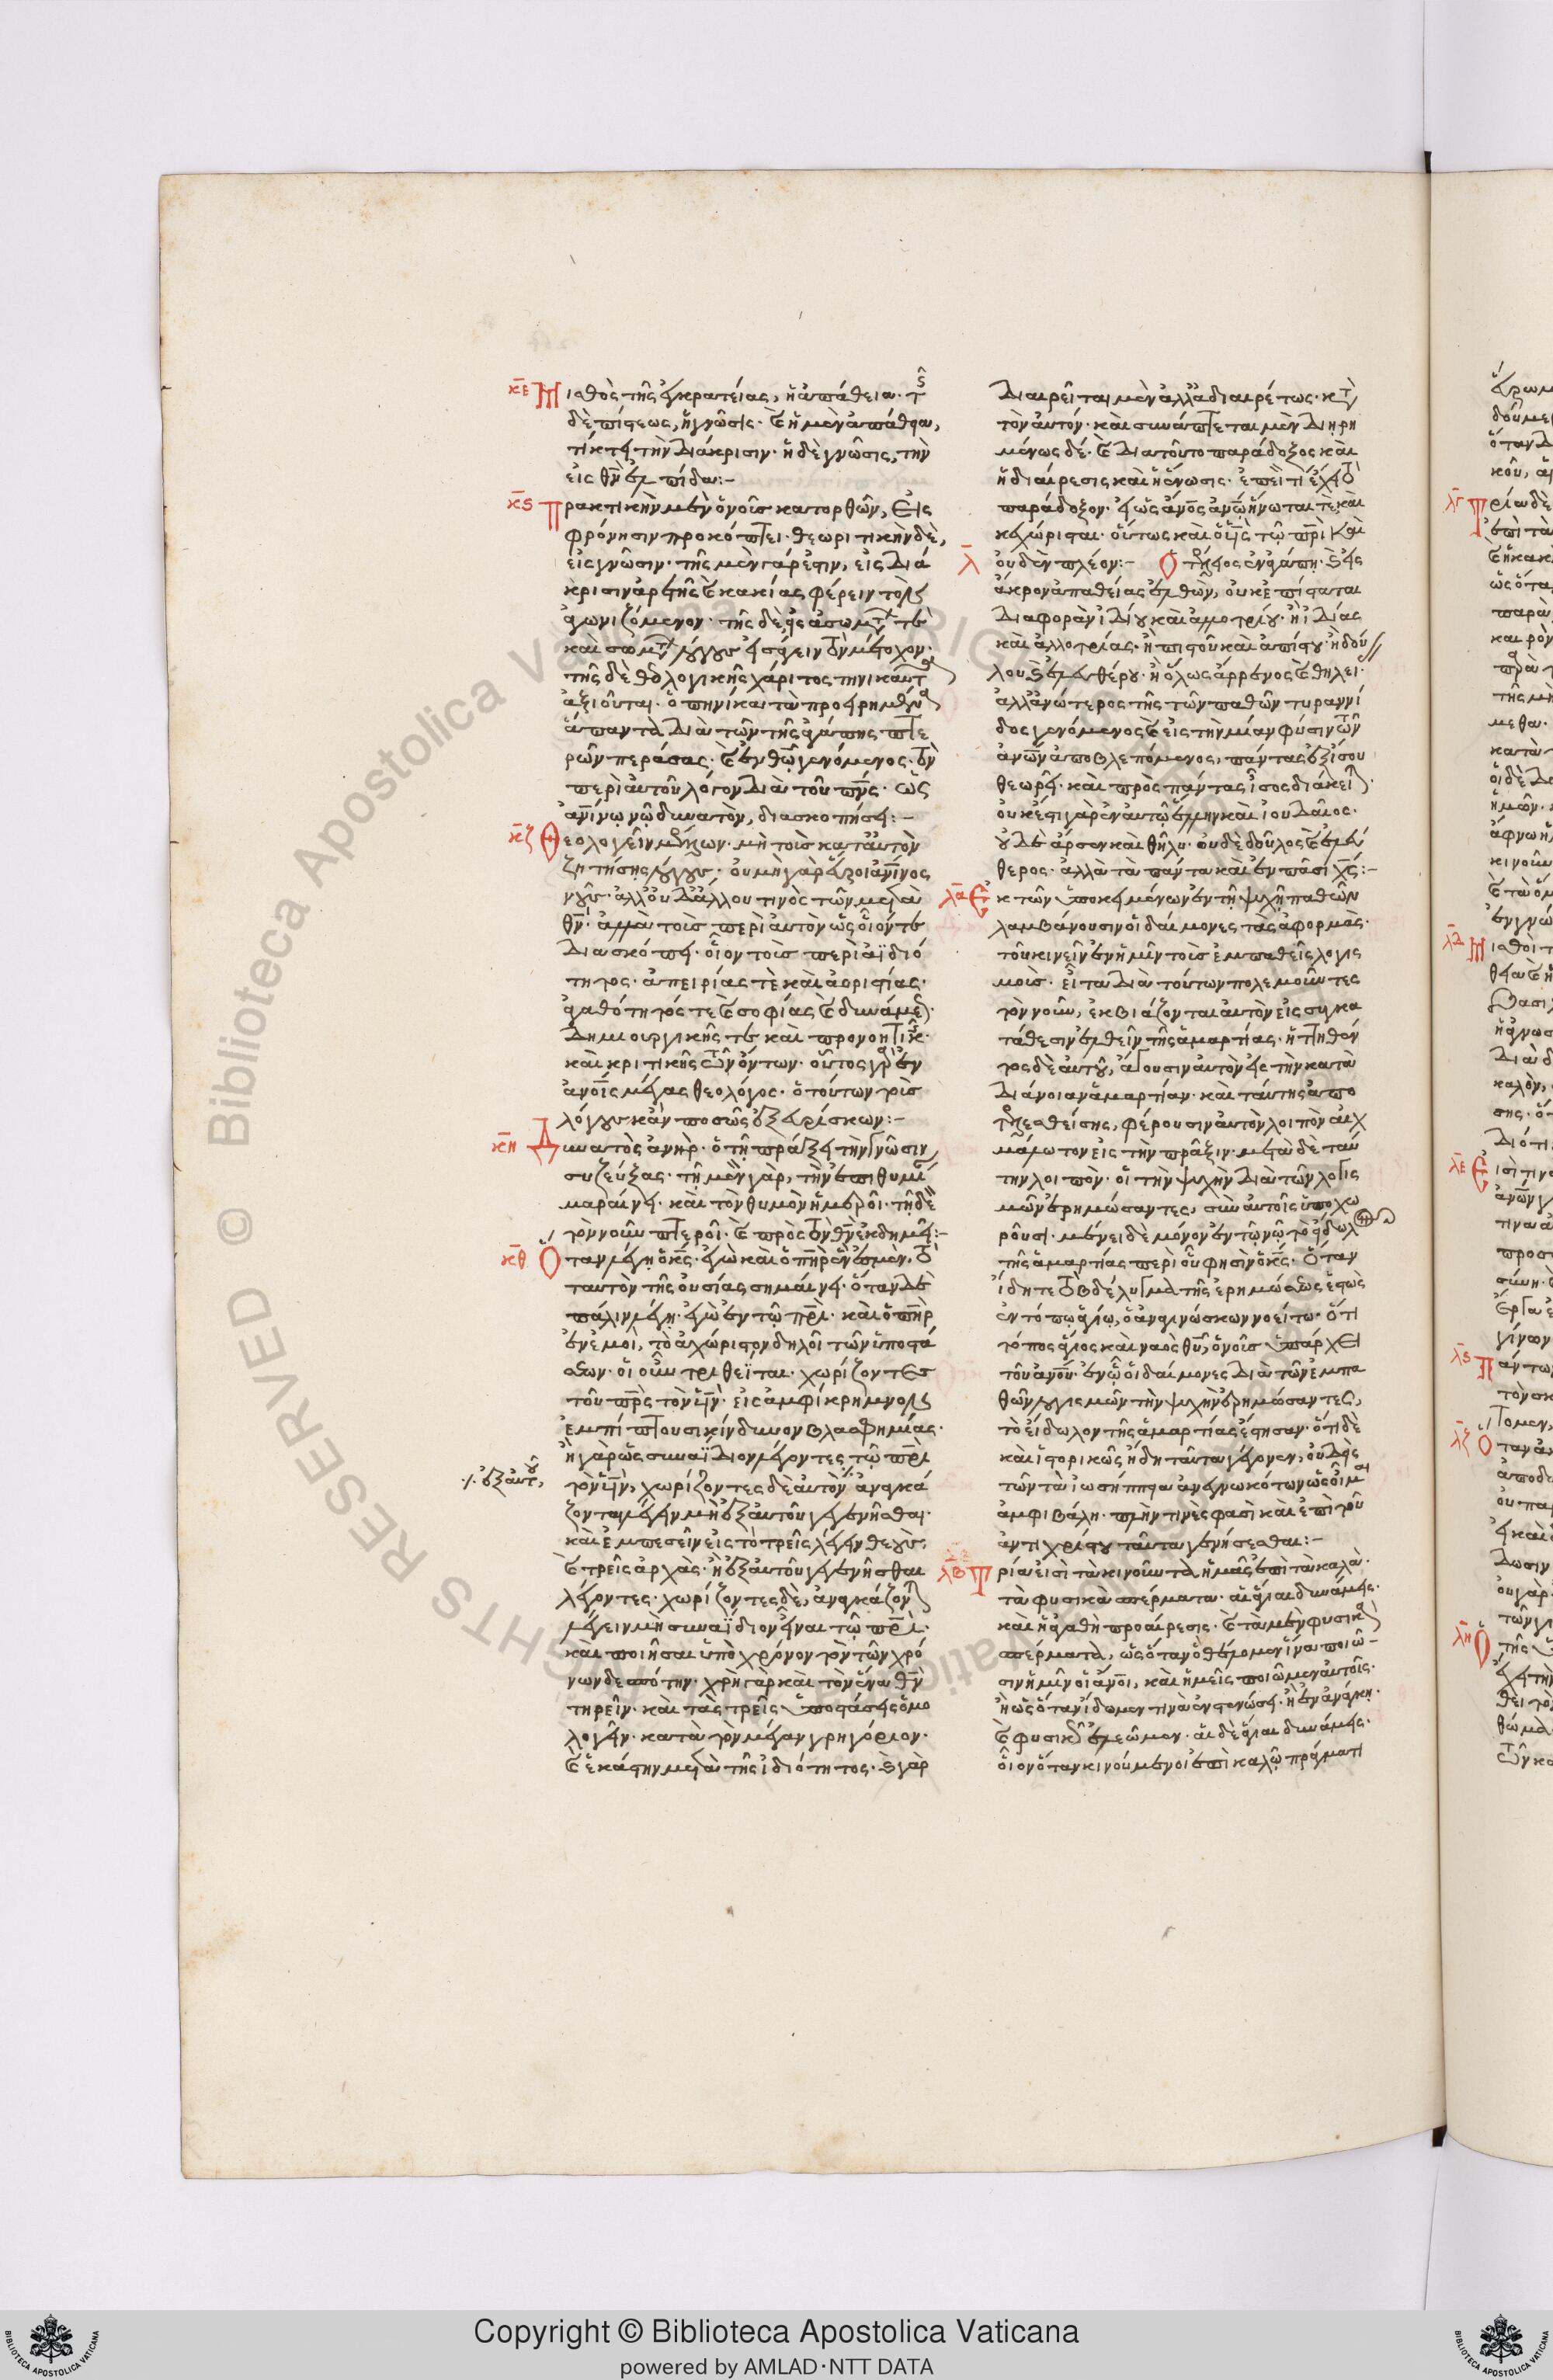 κ̅ε̅ Μισθὸς τῆς ἐγκρατείας, ἡ ἀπάθεια· τῆς
δὲ πίστεως, ἡ γνῶσις· καὶ ἡ μὲν ἀπάθεια,
τίκτει τὴν διάκρισιν· ἡ δὲ γνῶσις, τὴν
εἰς θ̅ν̅ ἐλπίδα:–
κ̅ς̅ Πρακτικὴν μὲν ὁ νοῦς κατορθῶν, εἰς
φρόνησιν προκόπτει· θεωρητικὴν δὲ,
εἰς γνῶσιν· τῆς μὲν γάρ ἐστιν, εἰς διά
κρισιν ἀρετῆς καὶ κακίας φέρειν τοὺς
ἀγωνιζόμενον· τῆς δὲ
τῆς δὲ θεολογικῆς χάριτος τηνικαῦτα
ἀξιοῦται· ὁπηνίκα τὰ προειρημένα
ἅπαντα διὰ τῶν τῆς ἀγάπης πτε
ρῶν περάσας· καὶ ἐν θ̅ῶ̅ γενόμενος· τὸν
περὶ αὐτοῦ λόγον διὰ τοῦ π̅ν̅ς̅· ὡς
ἀν̅ίνω νῶ δυνατὸν, διασκοπήσει:–
κ̅ζ̅ Θεολογεῖν μέλλων· μὴ τοὺς κατ' αὐτὸν
ζητήσῃς λόγους· οὐ μὴ γὰρ εὕροι ἀν̅ινος
νοῦς· ἀλλ' οὐδ' ἄλλου τινὸς τῶν μετὰ
θ̅ν̅· ἀλλὰ τοὺς περὶ αὐτὸν ὡς οἷόν τε
διασκόπει· οἷον τοὺς περὶ ἀϊδιό
τητος· ἀπειρίας τὲ καὶ ἀοριστίας·
ἀγαθότητός τε καὶ σοφίας καὶ δυνάμεως
δημιουργικῆς τε καὶ προνοητικῆς·
καὶ κριτικῆς τῶν ὄντων· οὗτος γὰρ ἐν
ἀν̅οις μέγας θεολόγος· ὁ τούτων τοὺς
λόγους κἂν ποσῶς ἐξευρίσκων:–
κ̅η̅ Δυνατὸς ἀνὴρ· ὁ τῇ πράξει τὴν γνῶσιν
συζεύξας· τῇ μὲν γὰρ, τὴν ἐπιθυμίαν
μαραίνει· καὶ τὸν θυμὸν ἡμεροῖ· τῇ δὲ
τὸν νοῦν πτεροῖ· καὶ πρὸς τὸν θ̅ν̅ ἐκδημεῖ:–
κ̅θ̅ Ὅταν λέγῃ ὁ κ̅ς̅· ἐγὼ καὶ ὁ π̅η̅ρ̅ ἕν ἐσμεν· τὸ
ταυτὸν τῆς οὐσίας σημαίνει· ὅταν δὲ
πάλιν λέγῃ· ἐγὼ ἐν τῶ π̅ρ̅ι̅· καὶ ὁ π̅η̅ρ̅
ἐν ἐμοὶ, τὸ ἀχώριστον δηλοῖ τῶν ὑποστά
σεων· οἱ οὖν τριθεΐται· χωρίζοντες
τοῦ π̅ρ̅ς̅ τὸν υ̅ν̅· εἰς ἀμφίκρημνον
ἐμπίπτουσι κίνδυνον βλασφημίας·
ἢ γὰρ ὡς συναΐδιον λέγοντες τῶ π̅ρ̅ι̅
τὸν υ̅ν̅, χωρίζοντες δὲ αὐτὸν ·/. ἀναγκά
·/. ἐξ αὐτοῦ,
ζονται λέγειν μὴ ἐξ αὐτοῦ γεγενῆσθαι·
καὶ ἐμπεσεῖν εἰς τὸ τρεῖς λέγειν θεοὺς,
καὶ τρεῖς ἀρχὰς· ἢ ἐξ αὐτοῦ γεγενῆσθαι
λέγοντες· χωρίζοντες δὲ, ἀναγκάζονται
λέγειν μὴ συναΐδιον εἶναι τῶ π̅ρ̅ι̅·
καὶ ποιῆσαι ὑπὸ χρόνον τὸν τῶν χρό
νων δεσπότην· χρὴ γὰρ καὶ τὸν ἕνα θ̅ν̅
τηρεῖν· καὶ τὰς τρεῖς ὑποστάσεις ὁμο
λογεῖν· κατὰ τὸν μέγαν γρηγόριον·
καὶ ἑκάστην μετὰ τῆς ἰδιότητος· καὶ γὰρ
διαιρεῖται μὲν ἀλλ' ἀδιαιρέτως· κατὰ
τὸν αὐτόν· καὶ συνάπτεται μὲν διῃρη
μένως δέ· καὶ διατοῦτο παράδοξος καὶ
ἡ διαίρεσις καὶ ἡ ἕνωσις· ἐπεὶ τί ἔχει τὸ
παράδοξον· εἰ ὡς ἄν̅ο̅ς̅ ἀν̅ω ἥνωταί τε καὶ
κεχώρισται· οὕτως καὶ ὁ υ̅ς̅ τῶ π̅ρ̅ι̅ καὶ
οὐδὲν πλέον:–
λ̅ Ὁ τέλειος ἐν ἀγάπῃ· καὶ εἰς
ἄκρον ἀπαθείας ἐλθὼν, οὐκ ἐπίσταται
διαφορὰν ἰδίου καὶ ἀλλοτρίου· ἢ ἰδίας
καὶ ἀλλοτρίας· ἢ πιστοῦ καὶ ἀπίστου· ἢ δού
λου καὶ ἐλευθέρου· ἢ ὅλως ἄρρενος καὶ θηλει·
ἀλλ' ἀνώτερος τῆς τῶν παθῶν τυραννί
δος γενόμενος καὶ εἰς τὴν μίαν φύσιν τῶν
ἀν̅ων ἀποβλεπόμενος, πάντας ἐξίσου
θεωρεῖ· καὶ πρὸς πάντας ἴσος διάκειται·
οὐκ ἔστι γὰρ ἐν αὐτῶ ἕλλην καὶ ἰουδαῖος·
οὐδὲ ἄρσεν καὶ θῆλυ· οὐδὲ δοῦλος καὶ ἐλεύ
θερος· ἀλλὰ τὰ πάντα καὶ ἐν πᾶσι χ̅ς̅:–
λ̅α̅ Ἐκ τῶν ὑποκειμένων ἐν τῇ ψυχῇ παθῶν
λαμβάνουσιν οἱ δαίμονες τὰς ἀφορμὰς·
τοῦ κινεῖν ἐν ἡμῖν τοὺς ἐμπαθεῖς λογισ
μοὺς· εἶτα διὰ τούτων πολεμοῦντες
τὸν νοῦν, ἐκβιάζονται αὐτὸν εἰς συγκα
τάθεσιν ἐλθεῖν τῆς ἁμαρτίας· ἡττηθέν
τος δὲ αὐτοῦ, ἄγουσιν αὐτὸν εἰς τὴν κατὰ
διάνοιαν ἁμαρτίαν· καὶ ταύτης ἀπο
τελεσθείσης, φέρουσιν αὐτὸν λοιπὸν αἰχ
μάλωτον εἰς τὴν πρᾶξιν· μετὰ δὲ ταύ
την λοιπὸν· οἱ τὴν ψυχὴν διὰ τῶν λογισ
μῶν ἐρημώσαντες, σὺν αὐτοῖς ὑποχω
ροῦσι· μένει δὲ μόνον ἐν τῶ νῶ τὸ εἴδωλον
τῆς ἁμαρτίας περὶ οὗ φησὶν ὁ κ̅ς̅· ὅταν
ἴδητε τὸ βδέλυγμα τῆς ἐρημώσεως ἑστὼς
ἐν τόπω ἁγίω, ὁ ἀναγινώσκων νοείτω· ὅτι
τόπος ἅγιος καὶ ναὸς θ̅υ̅, ὁ νοῦς ὑπάρχει
τοῦ ἀν̅ου· ἐν ὧ οἱ δαίμονες διὰ τῶν ἐμπα
θῶν λογισμῶν τὴν ψυχὴν ἐρημώσαντες,
τὸ εἴδωλον τῆς ἁμαρτίας ἔστησαν· ὅτι δὲ
καὶ ἱστορικῶς ἤδη ταῦτα γέγονεν, οὐδεὶς
τῶν τὰ ἰωσήππου ἀνεγνωκότων ὡς οἶμαι
ἀμφιβάλη· πλὴν τινὲς φασὶ καὶ ἐπὶ τοῦ
ἀντιχρίστου ταῦτα γενήσεσθαι:–
λ̅β̅ Τρία εἰσὶ τὰ κινοῦντα ἡμᾶς ἐπὶ τὰ καλὰ·
τὰ φυσικὰ σπέρματα· αἱ ἅγιαι δυνάμεις·
καὶ ἡ ἀγαθὴ προαίρεσις· καὶ τὰ μὲν φυσικὰ
σπέρματα, ὡς ὅταν ὃ θέλομεν ἵνα ποιῶ–
σιν ἡμῖν οἱ ἄν̅οι, καὶ ἡμεῖς ποιῶμεν αὐτοῖς·
ἢ ὡς ὅταν ἴδωμεν τινὰ ἐν στενώσει· ἢ ἐν ἀνάγκῃ·
καὶ φυσικῶς ἐλεῶμεν· αἱ δὲ ἅγιαι δυνάμεις·
οἷον ὅταν κινούμενοι ἐπὶ καλῶ πράγματι
Copyright © Biblioteca Apostolica Vaticana
powered by AMLAD·NTT DATA